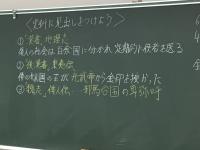 <史料に見出しをつけよう>
①「漢書」地理志
倭人の社会は百余国に分かれ 定期的に使者を送る
②「後漢書」東夷伝
倭の奴国の王が 光武帝から金印を授かった
③「魏志」倭人伝 邪馬台国の卑弥呼